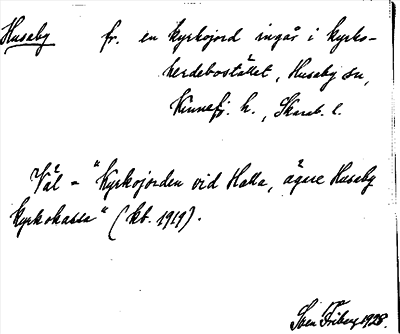 Huseby fr. en kyrkojord ingår i kyrko-
herdebostället, Husaby sn,
Kinnefj. h., Skarab. l.
Väl = "Kyrkojorden vid Halla, ägare Husaby
kyrkokassa" (kb. 1919).
Sven Friberg 1928.